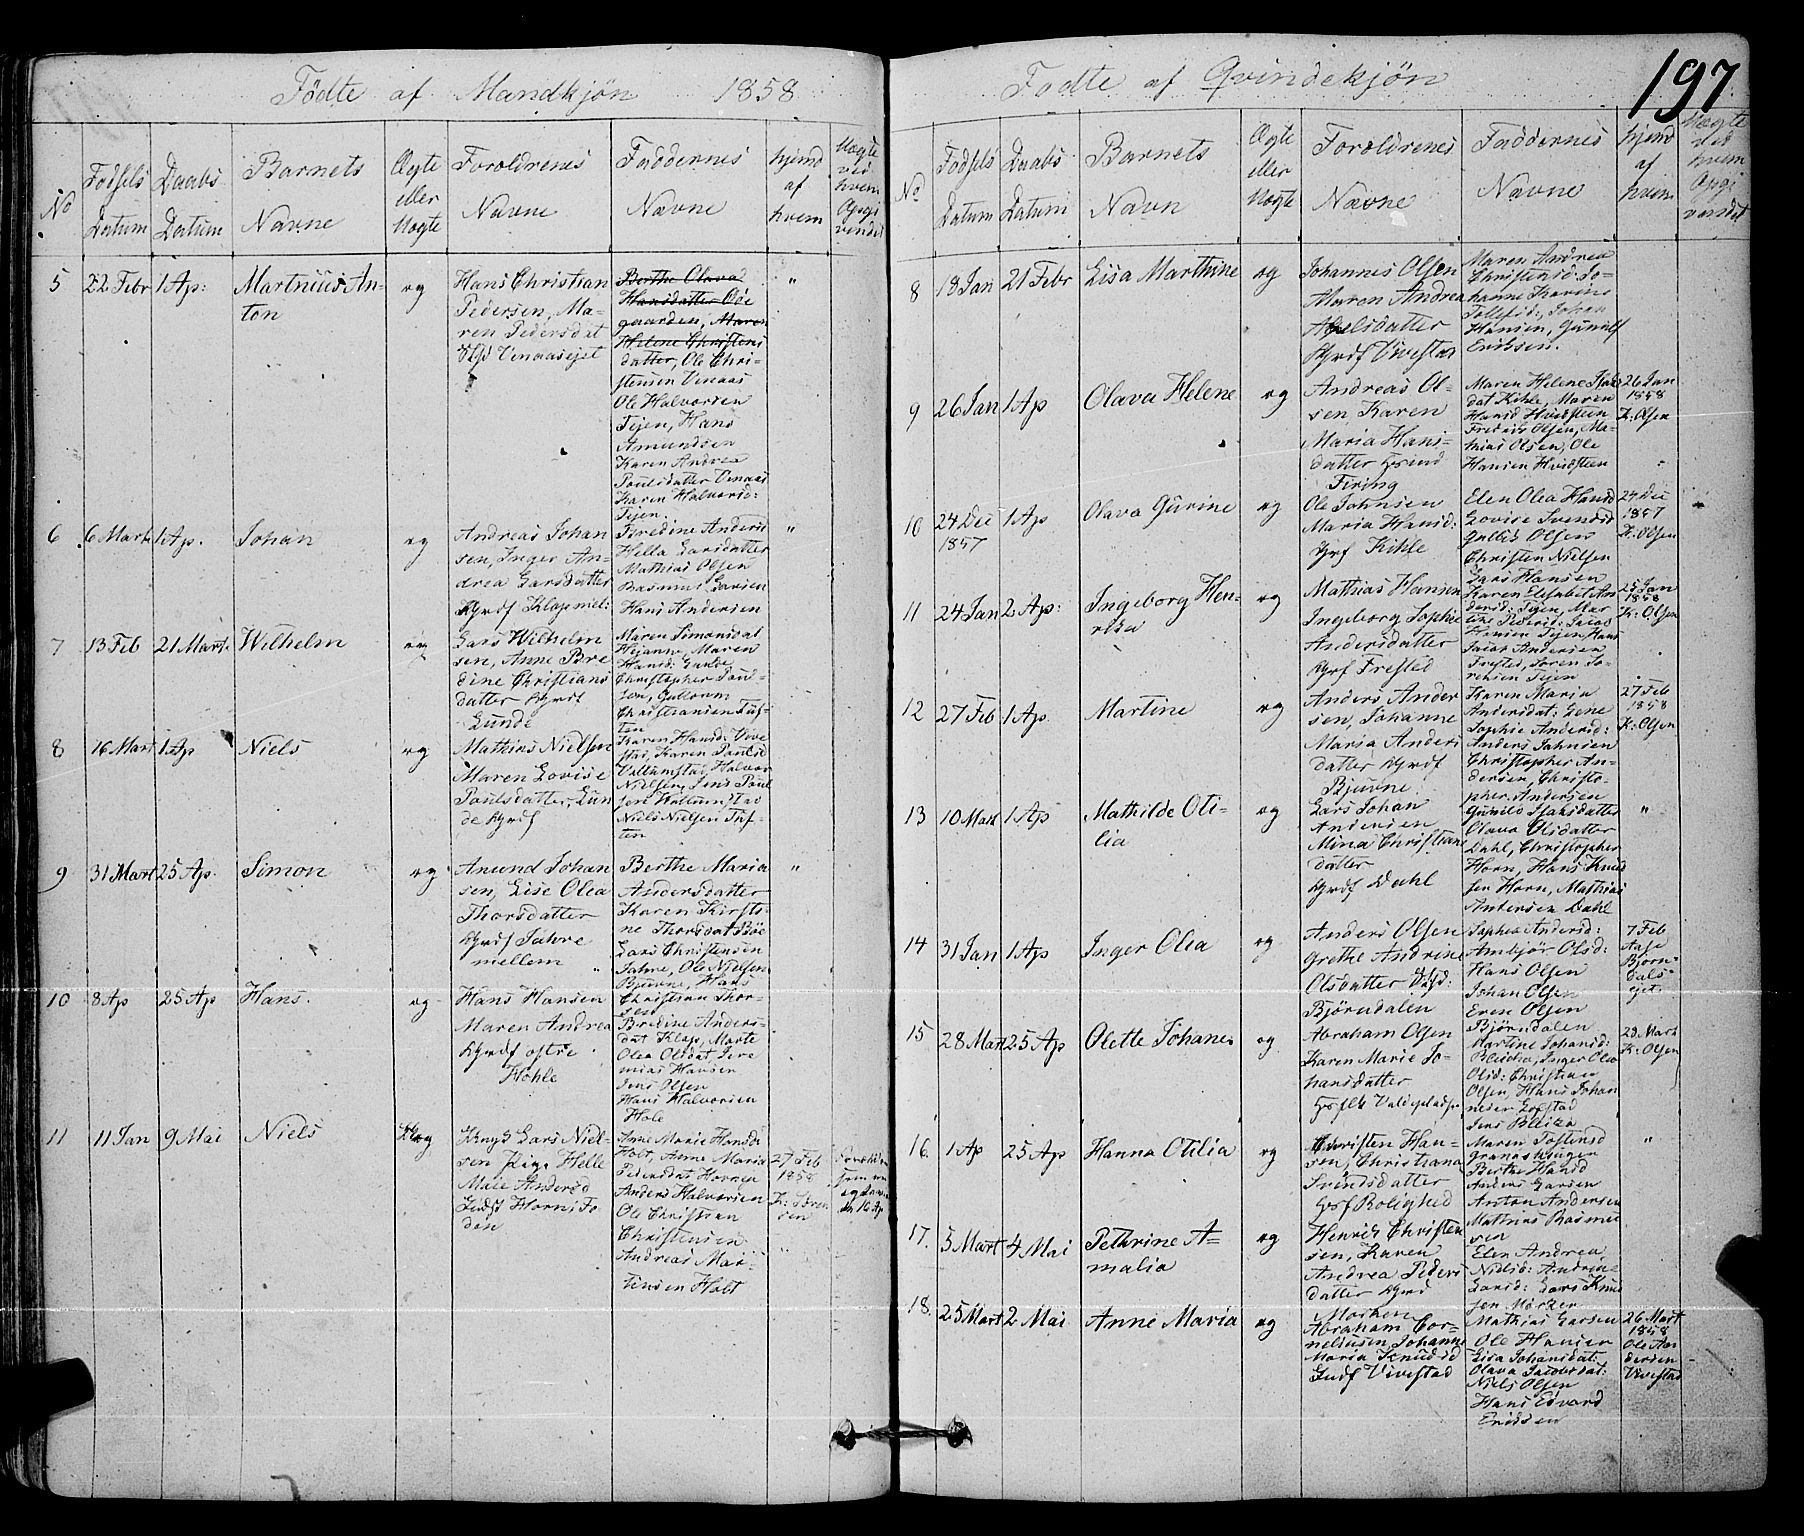 Födte af Mandkjön 1858
No
Fødsels Datum
Daabs Datum
Barnets Navne
Ægte eller Uægte
Foroldrenes Navne
Faddernes Navne
hjemd af hvem
5
22 Febr
1 Ap:
Martnius An-
ton
og
Hans Christian
Pedersen, Ma-
ren Pedersdat
Berthe Olava
Hansdatter
gaarden, Maren
Helene Christens
datter, Ole Chri-
stensen Vinaas
Ole Halvorsen
Tejen, Hans
Amundsen
Karen Andrea
Poulsdatter Vinaas
Karen Halvorsd:
Tejen.
"
6
6 Mart
1 Ap.
Johan
og
Andreas Johan
sen, Inger An-
drea Larsdatter
Gyrdf
Anders
Larsdatter
Mathias Olsen
Rasmus Larsen
Hans Andersen
"
7
13 Feb
21 Mart.
Wilhelm
og
Lars Wilhelm
sen, Anne Bre
dine Christians
datter Gyrdf
Lunde
Maren Simonsdat
Maren
Hansd: Lunde
Christopher Poul-
sen,
Christiansen Tuf-
ten
8
16 Mart
1 Ap
Niels
og
Mathias Nielsen
Maren Lovise
Poulsdatter, Lun
de Gyrdf
Karen Hansd: Vive
stad, Karen Poulsd
Halvor
Nielsen, Jens Poul
sen
Niels Nielsen Tuf-
ten
9
31 Mart
25 Ap.
Simon
og
Amund Johan
sen, Lise Olea
Thorsdatter
Gyrdf Jahre
mellem
Berthe Maria
Andersdatter
Karen Kirsti-
ne Thorsdat Böe
Lars Christensen
Jahre, Ole Nielsen
Bjuvne, Hans
Christian Thor-
sen
"
10
8 Ap
25 Ap
Hans.
og
Hans Hansen
Maren Andrea
Gyrdf østre
Hohle
Bredine Anders-
dat Klap, Marte
Olea Olsdat Jere
mias Hansen
Jens Olsen
Hans Halvorsen
Hole
11
11 Jan
9 Mai
Niels
og
Lars Niel-
sen Pige Helle
Marie Andersd
Anne Marie Hansd:
Holt, Anne Maria
Pedersdat
Anders Halvorsen
Ole Christian
Christensen
Andreas Mar-
tinsen Holt
27 Feb
1858
K: Sören
sen
Fodte af Qvindekjön
197
No
Fødsels Datum
Daabs Datum
Barnets Navn
Ægte eller Uægte
Foroldrenes Navne
Faddernes Navne
hjemd af hvem
8
18 Jan
21 Febr
Lisa Marthine
og
Johannes Olsen
Maren Andrea
Abelsdatter
Gyrdf Vivestad
Maren Andrea
Christensd: Jo-
hanne Karine
Tollefsd:, Johan
Hansen, Gunulf
Eriksen.
9
26 Jan
1 Ap
Olava Helene
og
Andreas Ol-
sen, Karen
Maria Hans-
datter
Firing
Maren Helene
dat Kihle, Maren
Hansd Hvidsteen
Fredrik Olsen, Ma-
thias Olsen, Ole
Hansen Hvidsteen
26 Jan
1858
K: Olsen
10
24 Dec
1857
1 Ap
Olava Gurine
og
Ole Johnsen
Maria Hansd:
Gyrf Kihle
Elen Olea Hansd
Lovise Svendsd
Gulbr Olsen
Christen Nielsen
Lars Hansen
24 Dec
1857
K: Olsen
11
24 Jan
2 Ap:
Ingeborg Hen-
rika
og
Mathias Hansen
Ingeborg Sophie
Andersdatter
Gyrf Fresled
Karen Elisabet An
dersd: Tejen, Mar
tine Pedersd: Jacob
Hansen Tejen, Hans
Jacob Andersen
Fresled, Sören Sö-
rensen Tejen
25 Jan
1858
K: Olsen
12
27 Feb
1 Ap.
Martine
og
Anders Ander
sen, Johanne
Maria Anders
datter Gyrdf
Bjuvne.
Karen Maria
Andersdat: Lene
Sophie Andersd:
Anders Johnsen
Christopher An-
dersen, Christo-
pher. Andersen
27 Feb
1858
K: Olsen
13
10 Mart
1 Ap
Mathilde Oti-
lia
og
Lars Johan
Andersen
Mina Christians
datter
Gyrdf Dahl
Gunild Isaksdatter
Olava Olsdatter
Dahl, Christopher
Horn, Hans Knud
sen Horn, Mathias
Antensen Dahl
"
14
31 Jan
1 Ap
Inger Olea
og
Anders Olsen
Grethe Andrine
Olsdatter
Björndalen
Sophie Andersd:
Ambjör Olsd:
Hans Olsen
Johan Olsen
Even Olsen
Björndalen
7 Feb
Aase
Björn-
dals-
ejet
15
28 Mart
25 Ap
Olette Johanes
og
Abraham Olsen
Karen Marie Jo-
hansdatter
Martine Johansd:
Bleika, Inger Olea
Olsd: Christian
Olsen, Hans Johan
nesen
Jens Bleika
29 Mart
K: Olsen
16.
1 Ap
25 Ap
Hanna Otilia
og
Christen Han-
sen, Christiana
Svendsdatter
Gyrf Bolighed
Maren Tostensd
Berthe Hansd
Anders Larsen
Anton Andersen
Mathias Rasmus
sen
"
17.
5 Mart
4 Mai
Pethrine A=
malia
og
Henrik Christen
sen, Karen
Andrea Peders
datter Gyrd
Morken
Elen Andrea
Nielsd: Andrin-
Larsd: Lars Knud
sen Mörken
18.
25 Mart
2 Mai
Anne Maria
og
Abraham Cor-
neliusen, Johanne
Maria Knudsd
Vivestad
Mathias Larsen
Ole Hansen
Lisa Johansdat:
Olava Jacobsdat:
Niels Olsen
Hans Edvard
Eriksen
26 Mart
1858
Ole An
dersen
Vivestad